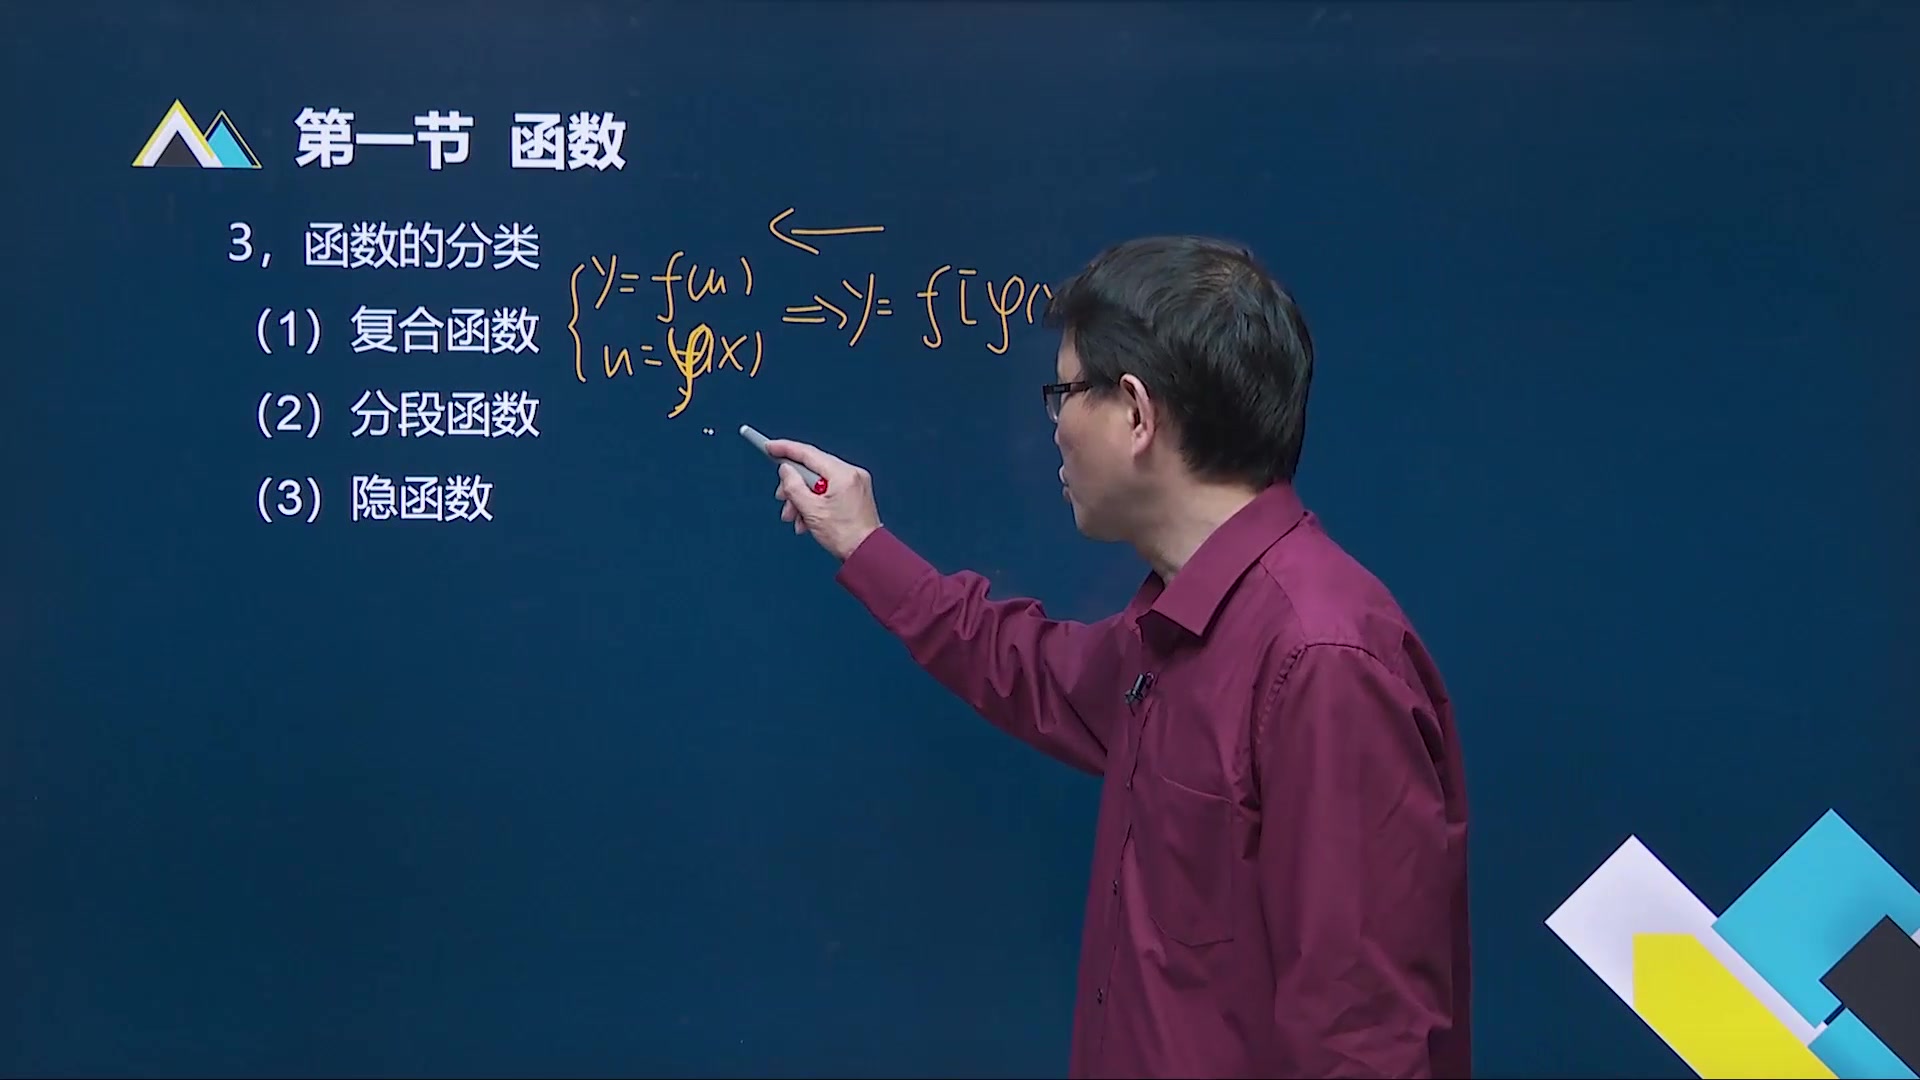 第一节 函数
3，函数的分类
（1）复合函数
（2）分段函数
（3）隐函数
y=f(u)
u=φ(x)
⇒y=f[φ(